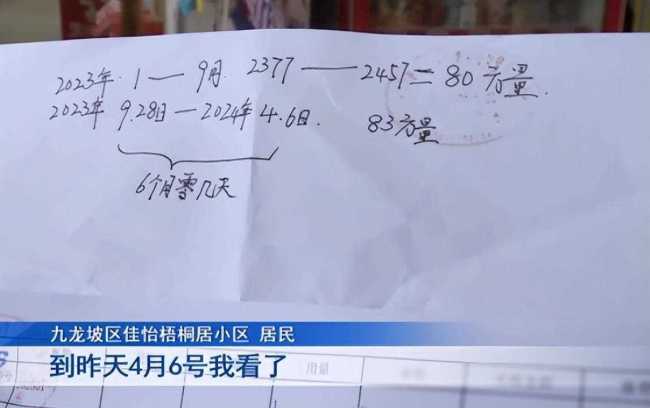 2023年.1—9月. 2377——2457=80方量.
2023年 9.28日—2024年4.6日. 83方量
6个月零几天
九龙坡区佳怡梧桐居小区 居民
到昨天4月6号我看了
用量